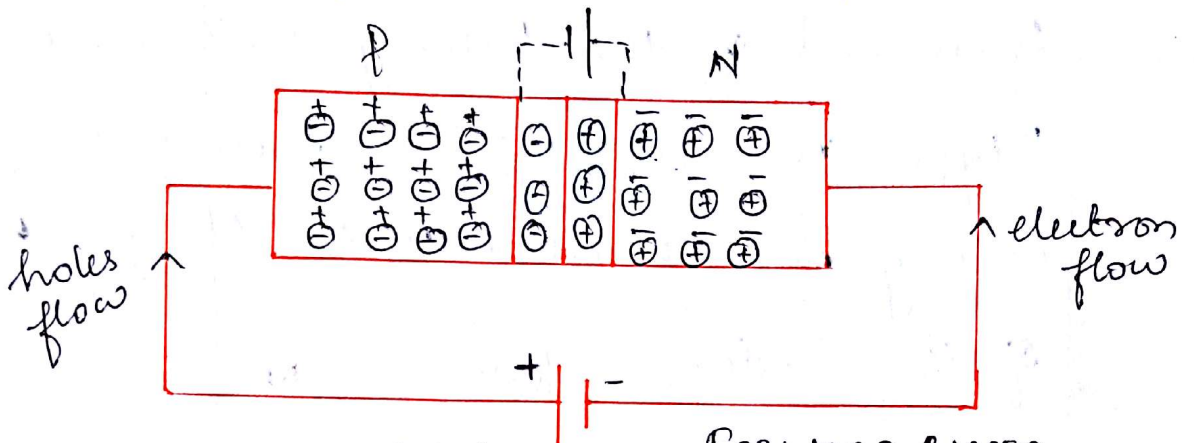 P
N
holes
flow
electron
flow
+
-